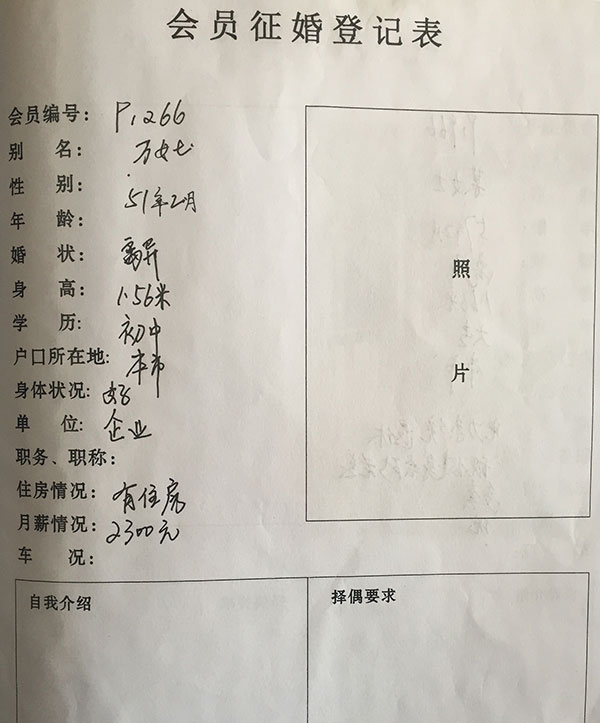 会员征婚登记表
会员编号: P1266
别 名: 万女士
性 别:
年 龄: 51年2月
婚 状: 离异
身 高: 1.56米
学 历: 初中
户口所在地: 本市
身体状况: 好
单 位: 企业
职务、职称:
住房情况: 有住房
月薪情况: 2300元
车 况:
照
片
自我介绍
择偶要求